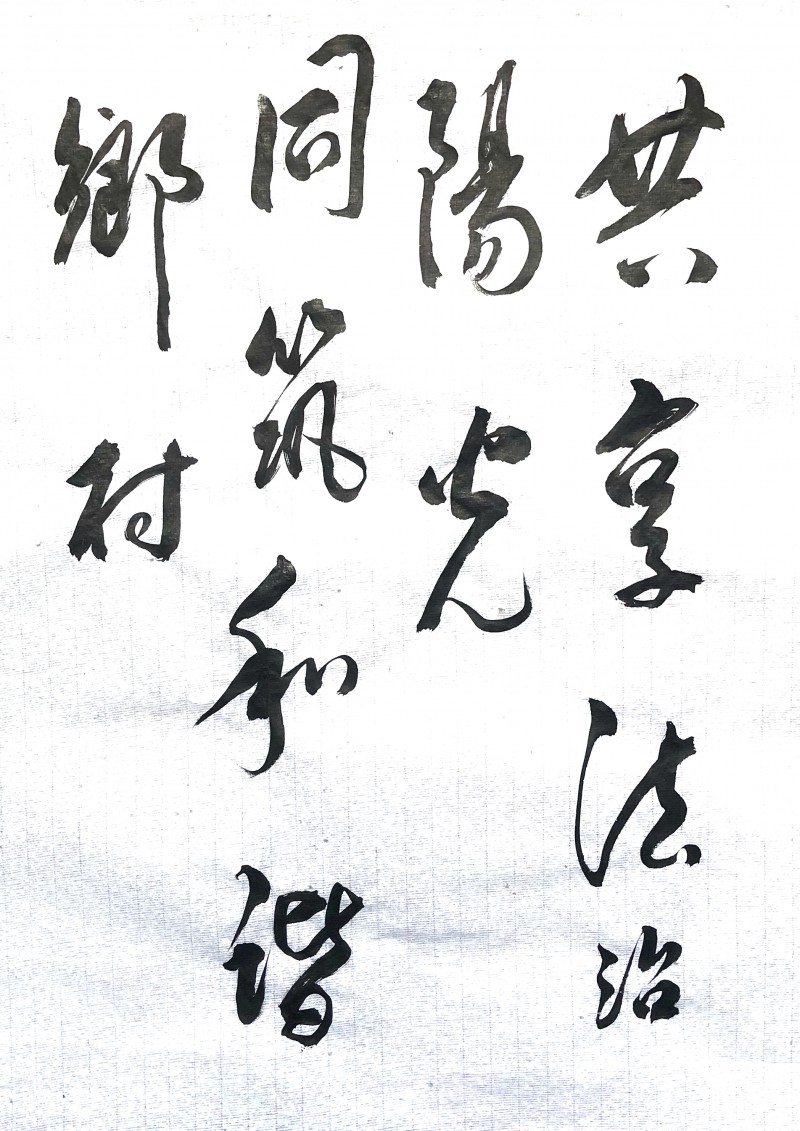 共享法治
陽光
同筑和谐
鄉村